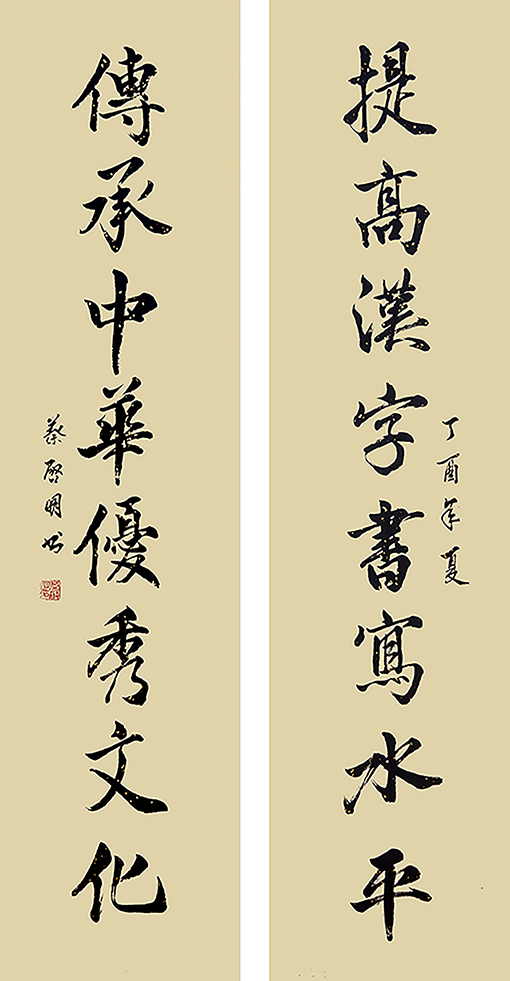 丁酉年夏
提高漢字書寫水平
傳承中華優秀文化
蔡啓明书